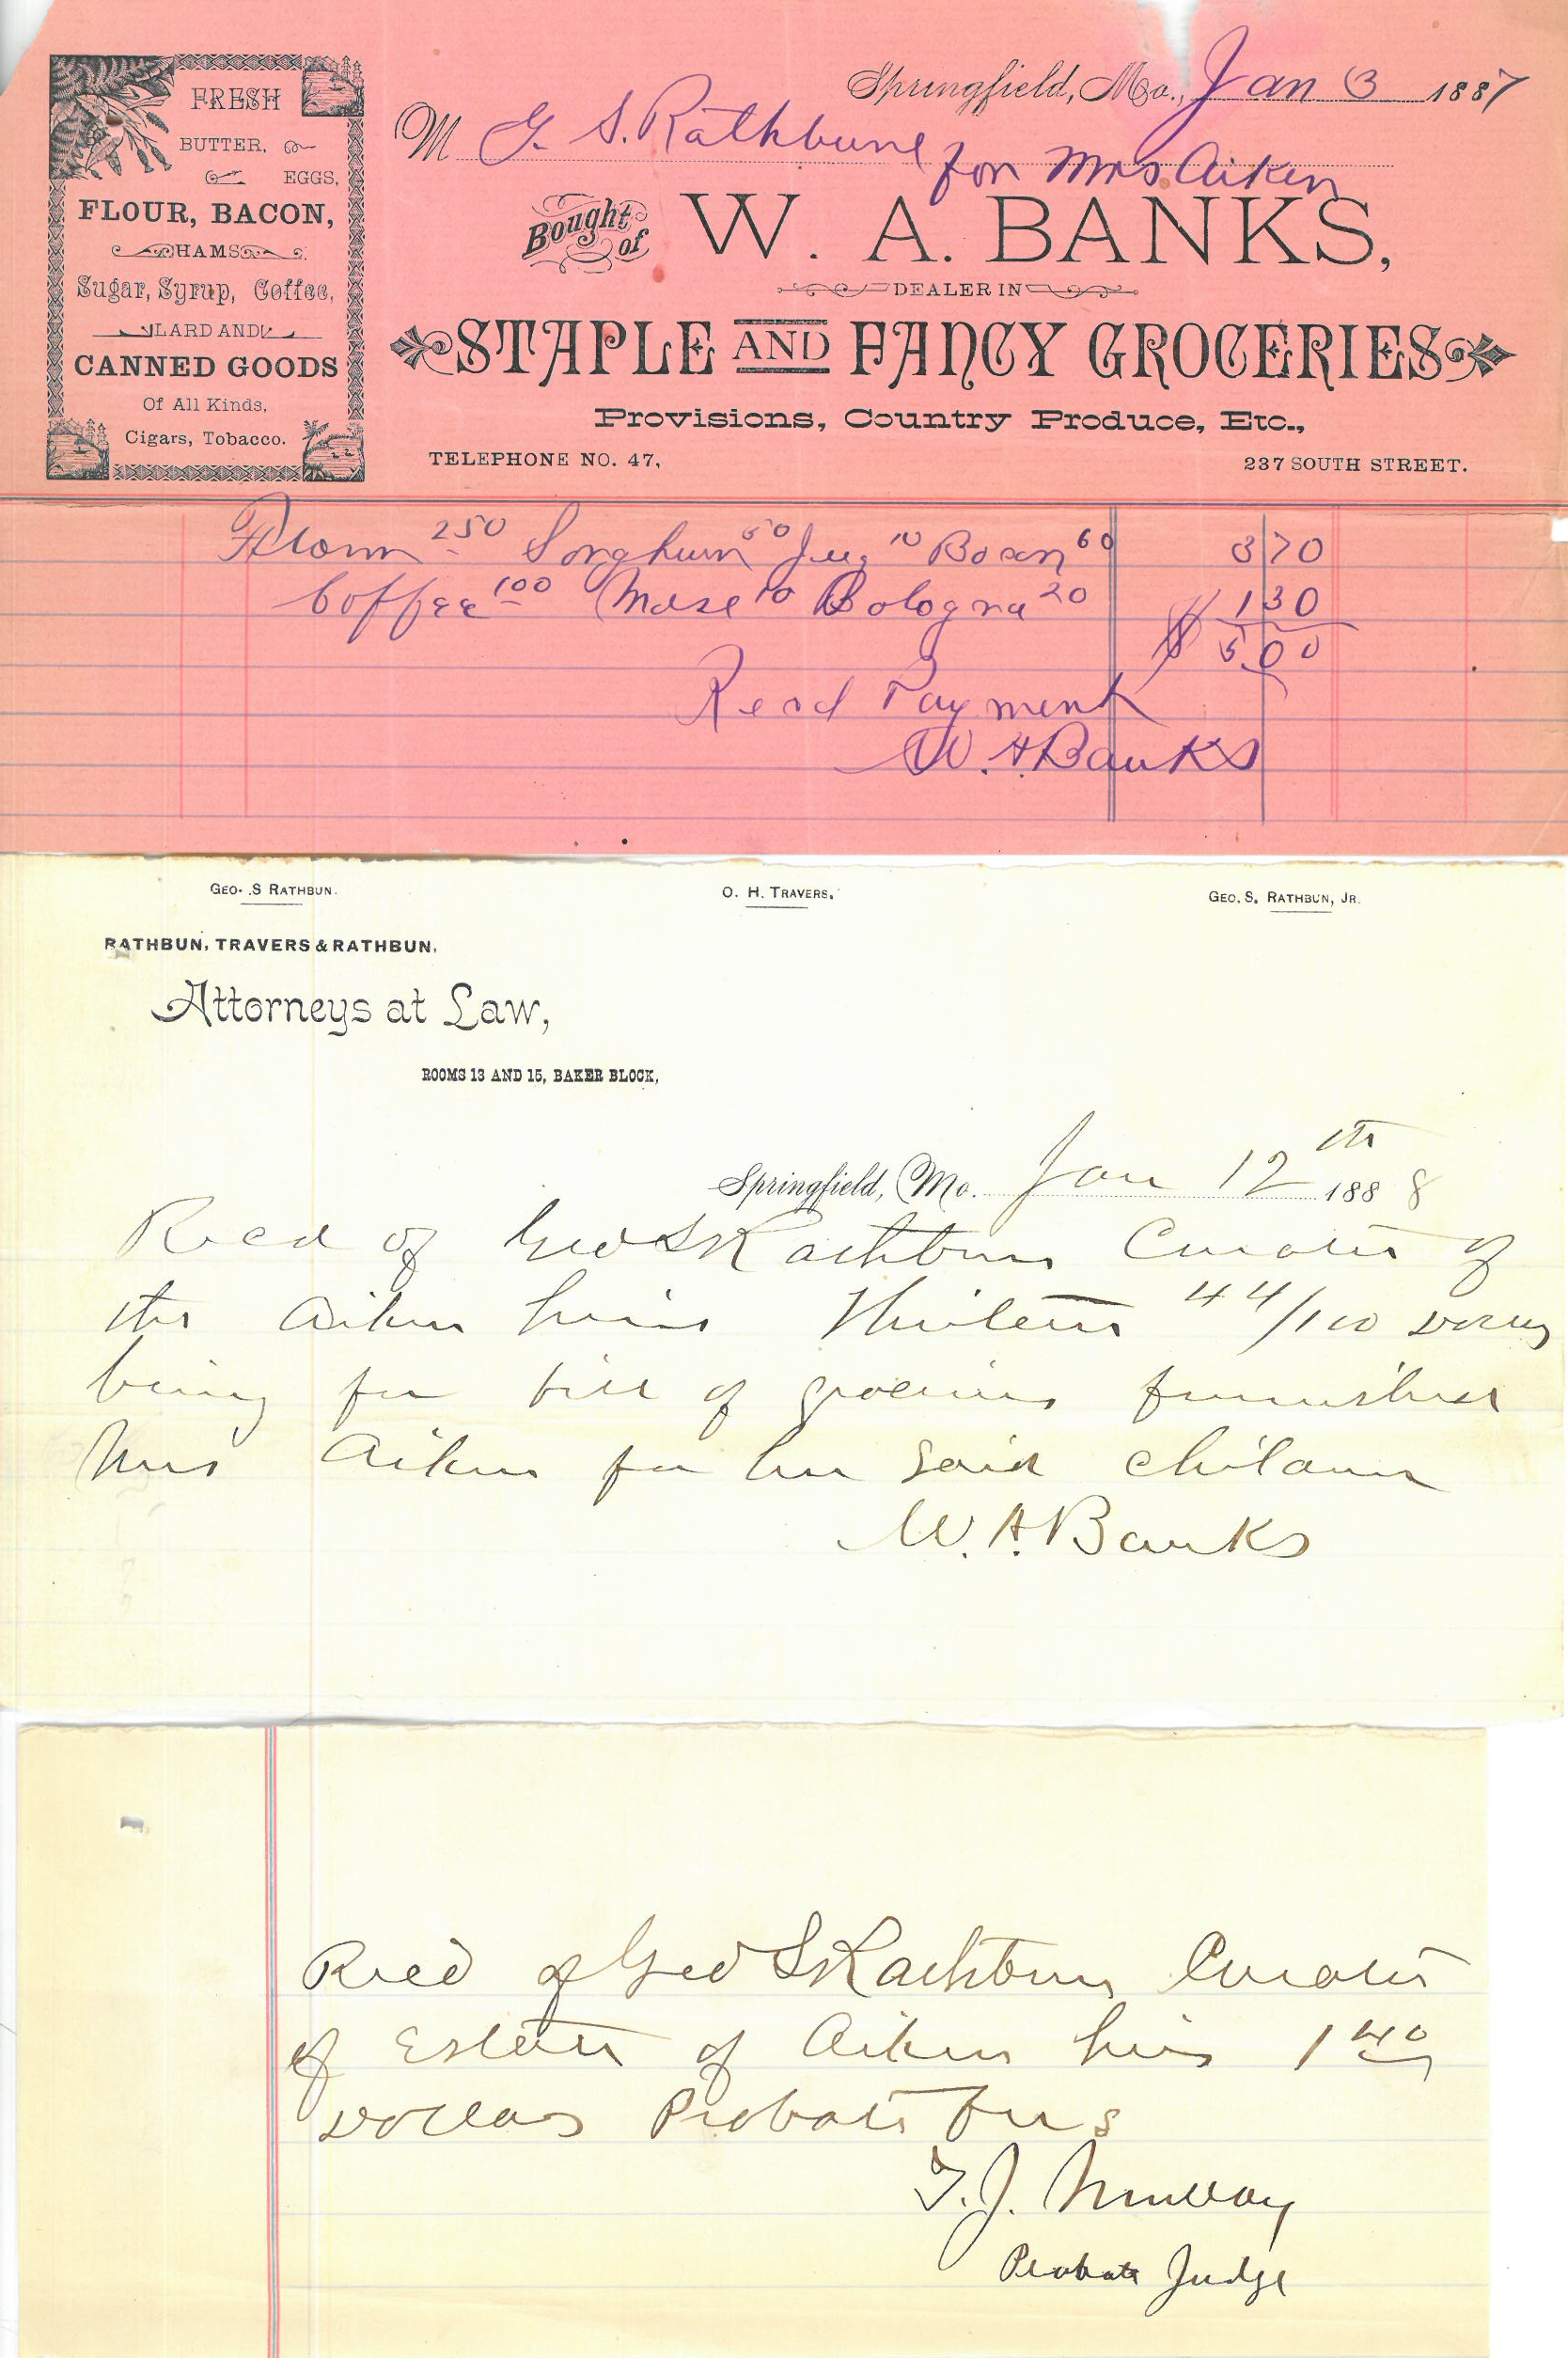 FRESH
BUTTER,
EGGS,
FLOUR, BACON,
HAMS
Sugar, Syrup, Coffee,
LARD AND
CANNED GOODS
Of All Kinds,
Cigars, Tobacco.
Springfield, Mo., Jan 3 1887
M G. S. Rathbune for Mrs Aiken
Bought of W. A. BANKS,
DEALER IN
STAPLE AND FANCY GROCERIES
Provisions, Country Produce, Etc.,
TELEPHONE NO. 47, 237 SOUTH STREET.
Flour 250 Sorghum 50 Jug 10 Bacn 60 3 70
Coffee 100 10 Bologna 20 1 30
$ 5 00
Recd Payment
W. A Banks
GEO. S RATHBUN. O. H. TRAVERS. GEO. S. RATHBUN, JR.
RATHBUN, TRAVERS & RATHBUN,
Attorneys at Law,
ROOMS 13 AND 15, BAKER BLOCK,
Springfield, Mo. Jan 12th 1888
Recd of Geo S Rathbun Curator of
the Aiken heirs Thirteen 44/100 Dollars
being for bill of groceries furnished
Mrs Aiken for her said children
W. A. Banks
Recd of Geo S Rathbun Curator
of Estate of Aiken heirs 1 40
Dollars Probate fees
Probate Judge